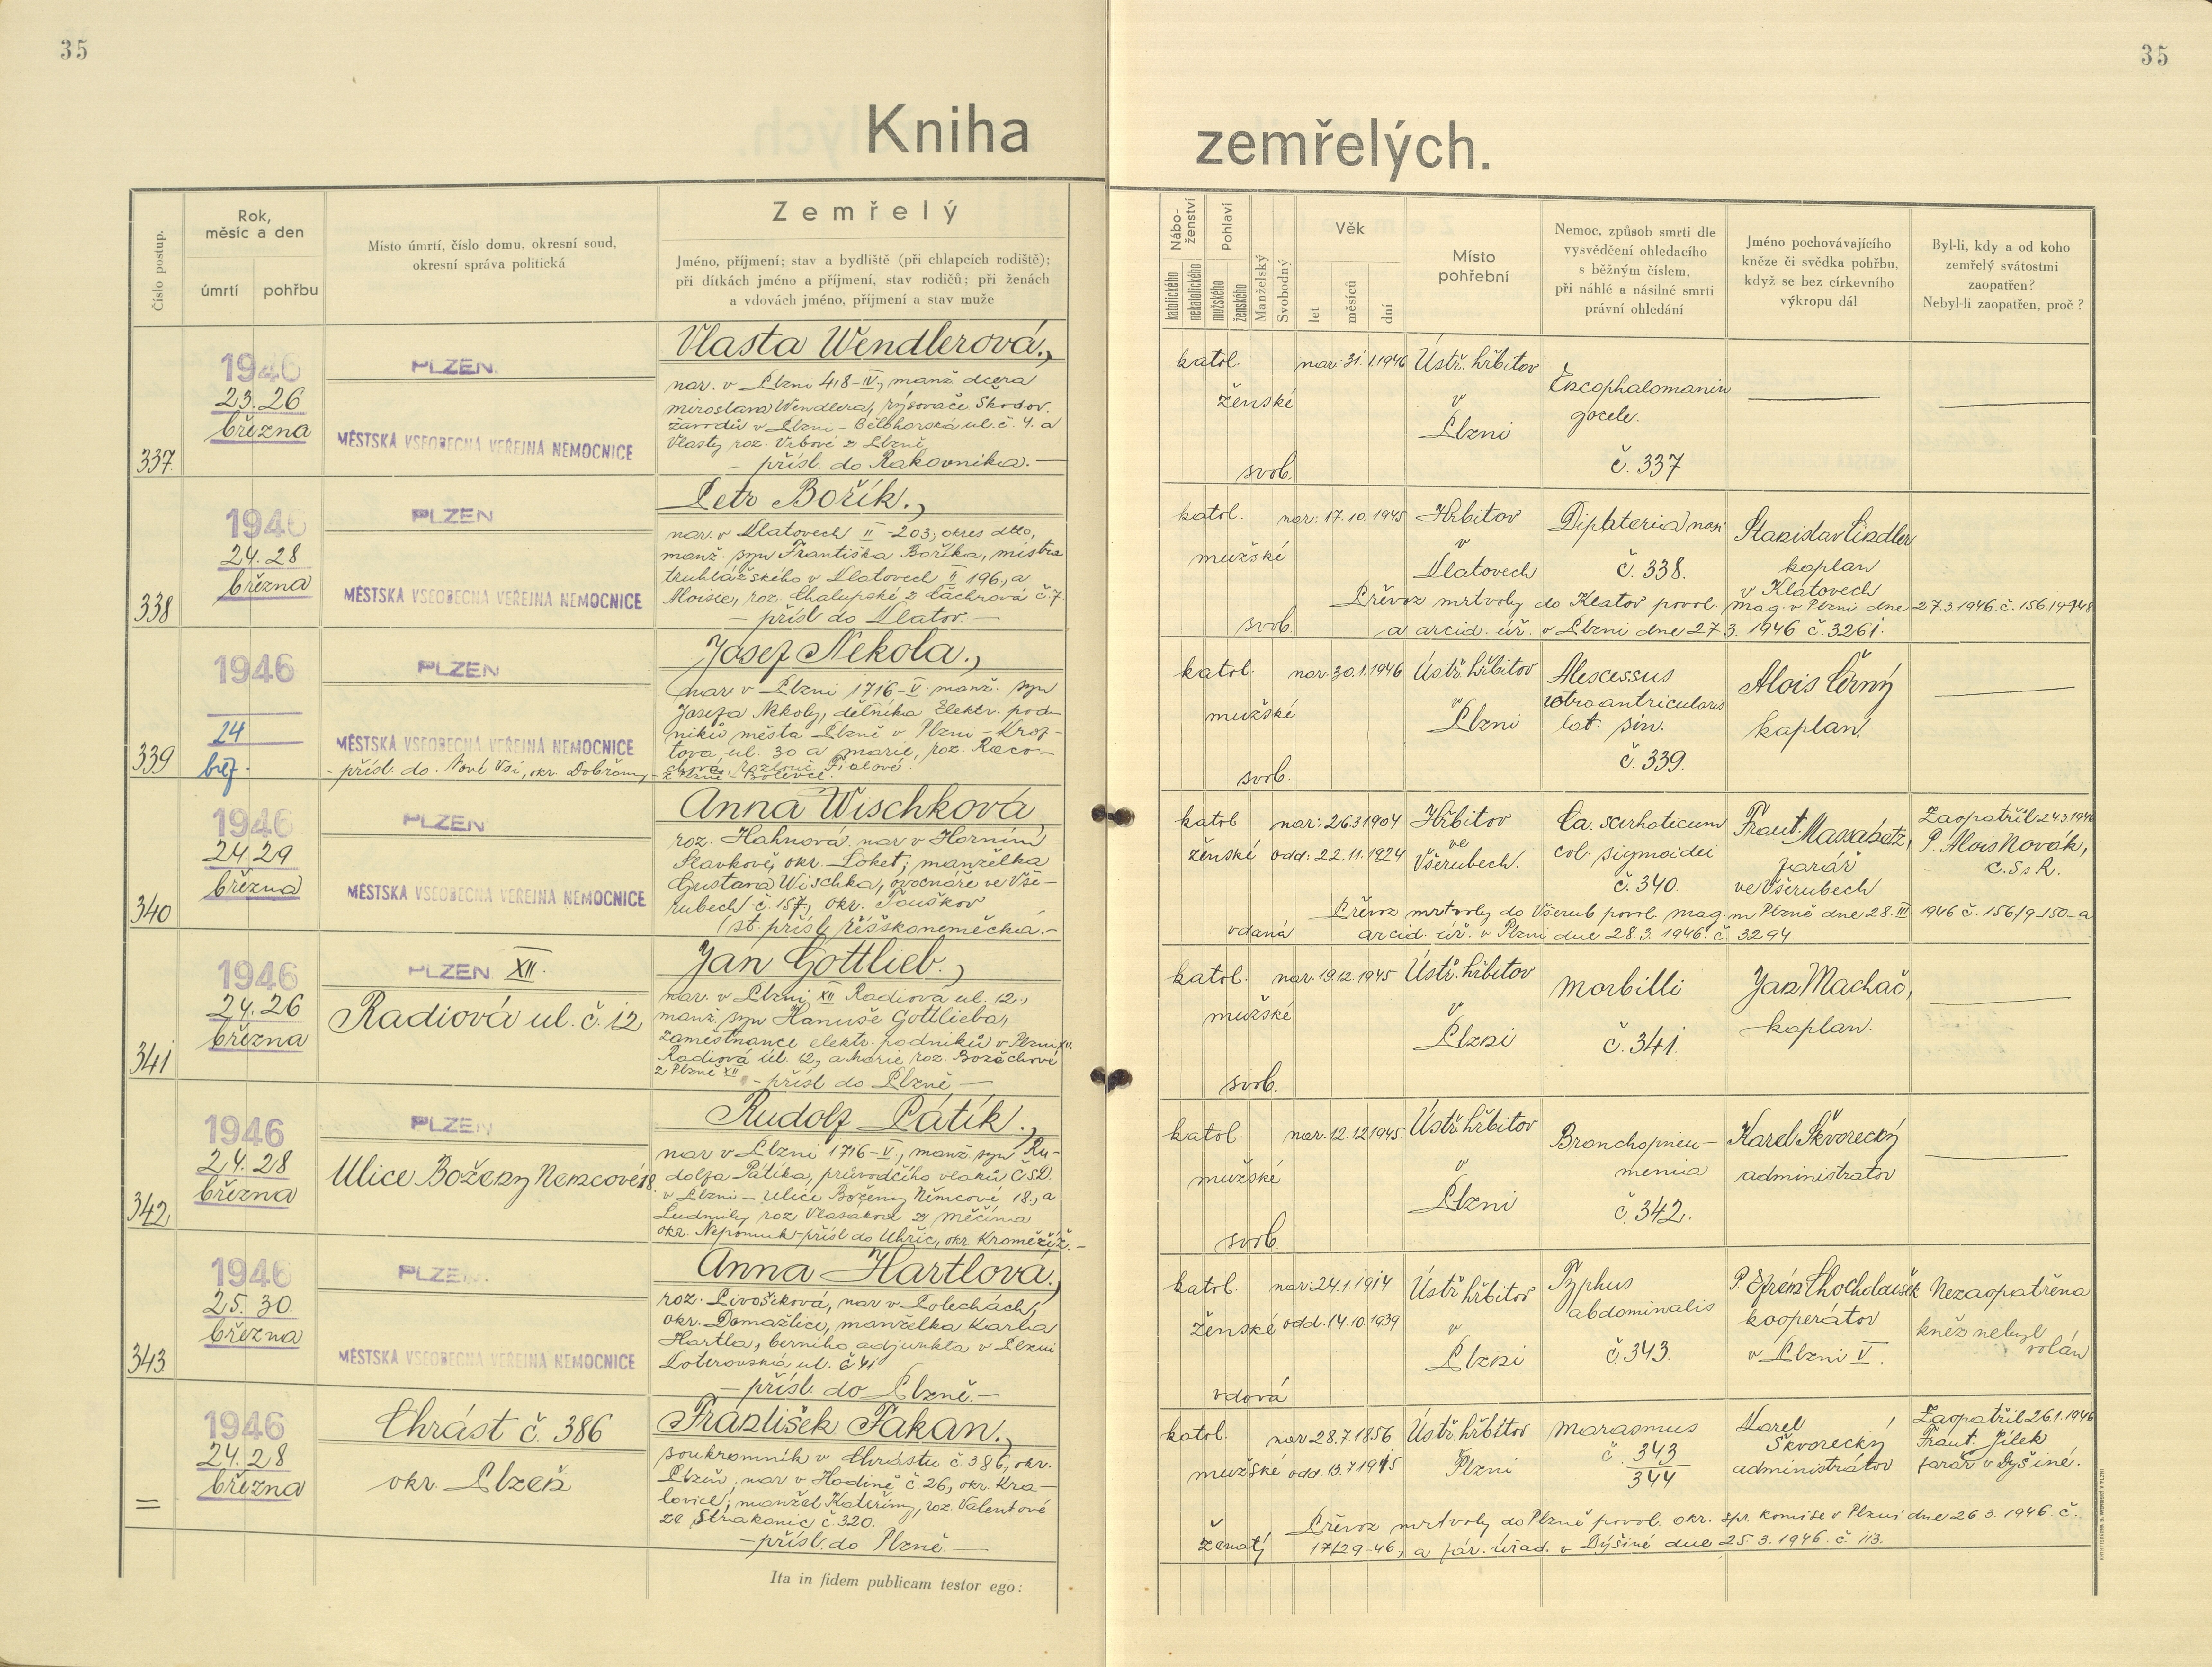 35
35
Kniha
zemřelých.
Číslo postup.
Rok,
měsíc a den
úmrtí
pohřbu
Místo úmrtí, číslo domu, okresní soud,
okresní správa politická
Zemřelý
Jméno, příjmení; stav a bydliště (při chlapcích rodiště);
při dítkách jméno a příjmení, stav rodičů; při ženách
a vdovách jméno, příjmení a stav muže
Nábo-
ženství
katolického
nekatolického
Pohlaví
mužského
ženského
Manželský
Svobodný
Věk
let
měsíců
dní
Místo
pohřební
Nemoc, způsob smrti dle
vysvědčení ohledacího
s běžným číslem,
při náhlé a násilné smrti
právní ohledání
Jméno pochovávajícího
kněze či svědka pohřbu,
když se bez církevního
výkropu dál
Byl-li, kdy a od koho
zemřelý svátostmi
zaopatřen?
Nebyl-li zaopatřen, proč?
337
1946
23. 26
března
PLZEN
MĚSTSKÁ VŠEOBECNÁ VEŘEJNÁ NEMOCNICE
Vlasta Wendlerová,
nar. v Plzni 418-IV, manž. dcera
Miroslava Wendlera, rýsovače Škodov.
závodů v Plzni - Bělohorská ul. č. 4. a
Vlasty roz. Vrbové z Plzně
- přísl. do Rakovníka. -
katol.
ženské
svob.
nar: 31. 1. 1946
Ústř. hřbitov
v
Plzni
gocele.
č. 337
338
1946
24. 28
března
PLZEN
MĚSTSKÁ VŠEOBECNÁ VEŘEJNÁ NEMOCNICE
Petr Bořík.,
nar. v Klatovech II - 203, okres dtto,
manž. syn Františka Boříka, mistra
truhlářského v Klatovech II 196, a
Aloisie, roz. Chalupské z č. 7.
- přísl. do Klatov. -
katol.
mužské
svob.
nar: 17. 10. 1945
Hřbitov
v
Klatovech
Diphteria nasi
č. 338.
Stanislav Lindler
kaplan
v Klatovech
Převoz mrtvoly do Klatov povol. mag. v Plzni dne 27.3.1946. č. 156.19148
a arcid. úř. v Plzni dne 27. 3. 1946 č. 3261.
339
1946
24
břez.
PLZEN
MĚSTSKÁ VŠEOBECNÁ VEŘEJNÁ NEMOCNICE
- přísl. do Nové Vsi, okr. Dobřany -
Josef Nekola.,
nar. v Plzni 1716-V. manž. syn
Josefa Nekoly, dělníka Elektr. pod-
niků města Plzně v Plzni - Krof-
tova ul. 30 a Marie, roz. Raco-
chové, rozlouč. Fialové
z Plzně - Bolevce.
katol.
mužské
svob.
nar. 30. 1. 1946
Ústř. hřbitov
v
Plzni
retroauricularis
lat. sin.
č. 339.
Alois Černý
kaplan.
340
1946
24. 29
března
PLZEN
MĚSTSKÁ VŠEOBECNÁ VEŘEJNÁ NEMOCNICE
Anna Wischková
roz. Hahnová nar. v Horním
Slavkově, okr. Loket, manželka
Gustava Wischka, ovocnáře ve Vše-
rubech č. 157, okr. Touškov
st. přísl. říšskoněmecká. -
katol
ženské
vdaná
nar: 26 3 1904
odd: 22. 11. 1924
Hřbitov
ve
Všerubech.
Ca. scirhoticum
col. sigmoidei
č. 340.
Frant. Massabetz,
farář
ve Všerubech
Zaopatřil 24 3 1946
P. Alois Novák,
C. Ss R.
Převoz mrtvoly do Všerub povol. mag. m Plzně dne 28. III. 1946 č. 156/9-150- a
arcid. úř. v Plzni dne 28. 3. 1946. č. 3294.
341
1946
24. 26
března
PLZEN XII.
Radiová ul. č. 12
Jan Gottlieb.,
nar. v Plzni XII Radiová ul. 12.,
manž. syn Hanuše Gottlieba,
zaměstnance elektr. podniků v Plzni XII.
Radiová ul. 12, a Marie roz. Boráchové
z Plzně XII
- přísl. do Plzně -
katol.
mužské
svob.
nar. 19. 12. 1945
Ústř. hřbitov
v
Plzni
Morbilli
č. 341.
Jan Machač,
kaplan.
342
1946
24. 28
března
PLZEN
Ulice Boženy Nemcové 18.
Rudolf Pátík.,
nar v Plzni 1716-V., manž. syn Ru-
dolfa Pátíka, průvodčího vlaků ČSD.
v Plzni - Ulice Boženy Němcové 18., a
Ludmily roz Vlasákové z Měčína
okr. Nepomuk - přísl do Uhřic, okr. Kroměříž. -
katol.
mužské
svob.
nar. 12. 12 1945.
Ústř. hřbitov
v
Plzni
Bronchopneu-
monia
č. 342.
Karel Škvorecký
administrátor
343
1946
25. 30.
března
PLZEN
MĚSTSKÁ VŠEOBECNÁ VEŘEJNÁ NEMOCNICE
Anna Hartlova.,
roz. Pivoňková, nar v Polechách,
okr. Domažlice, manželka Karla
Hartla, berního adjunkta v Plzni
ul. č 41
- přísl. do Plzně. -
katol.
ženské
vdová
nar 24. 1. 1914
odd. 14. 10. 1939
Ústř hřbitov
v
Plzni
Typhus
abdominalis
č. 343.
P. Efrém
kooperátor
v Plzni V.
Nezaopatřena
kněz nebyl
volán
=
1946
24. 28
března
Chrást č. 386
okr. Plzeň
František Fakan.,
soukromník v Chrástu č 386, okr.
Plzeň, nar v Hadině č. 26, okr. Kra-
lovice, manžel Kateřiny, roz. Valentové
ze Strakonic č. 320.
- přísl. do Plzně. -
katol.
mužské
ženatý
nar 28. 7. 1856
odd. 13. 7 1915
Ústř. hřbitov
Plzni
Marasmus
č. 343
344
Karel
Škvorecký
administrátor
Zaopatřil 26. 1. 1946
Frant. Jílek
farář v Dyšině.
Převoz mrtvoly do Plzně povol. okr. spr. komise v Plzni dne 26 3. 1946. č.
17129-46, a far. úřad. v Dýšině dne 25. 3. 1946. č. 113.
Ita in fidem publicam testor ego: